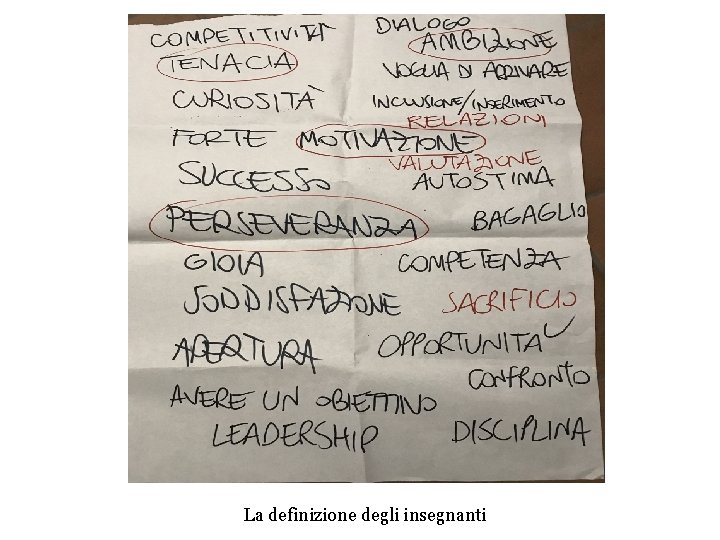 COMPETITIVITÀ DIALOGO
TENACIA AMBIZIONE
VOGLIA DI ARRIVARE
CURIOSITÀ INCLUSIONE/INSERIMENTO
RELAZIONI
FORTE MOTIVAZIONE
VALUTAZIONE
SUCCESSO AUTOSTIMA
PERSEVERANZA BAGAGLIO
GIOIA COMPETENZA
SODDISFAZIONE SACRIFICIO
APERTURA OPPORTUNITÀ
CONFRONTO
AVERE UN OBIETTIVO
LEADERSHIP DISCIPLINA
La definizione degli insegnanti